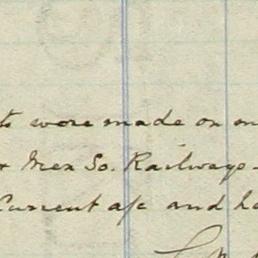 were made on
Mex So. Railways
Current a/c and